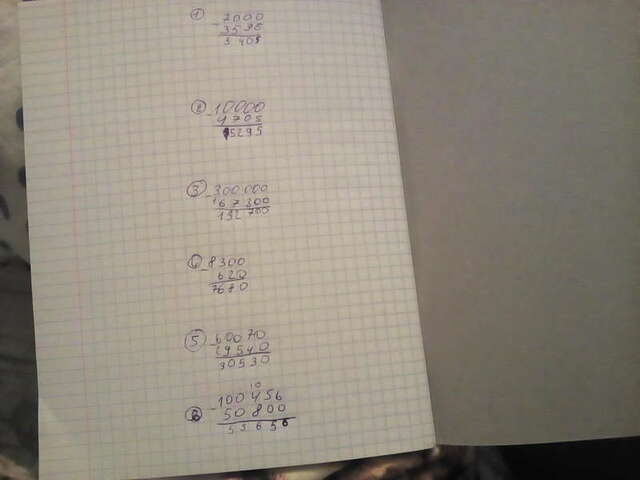 ① 7000
- 3596
3 404
② 10000
- 4705
5295
③ 300 000
- 167 300
132 700
④ 8300
- 620
7680
⑤ 60070
- 29540
30530
⑥ 10
100 456
- 50 800
53656